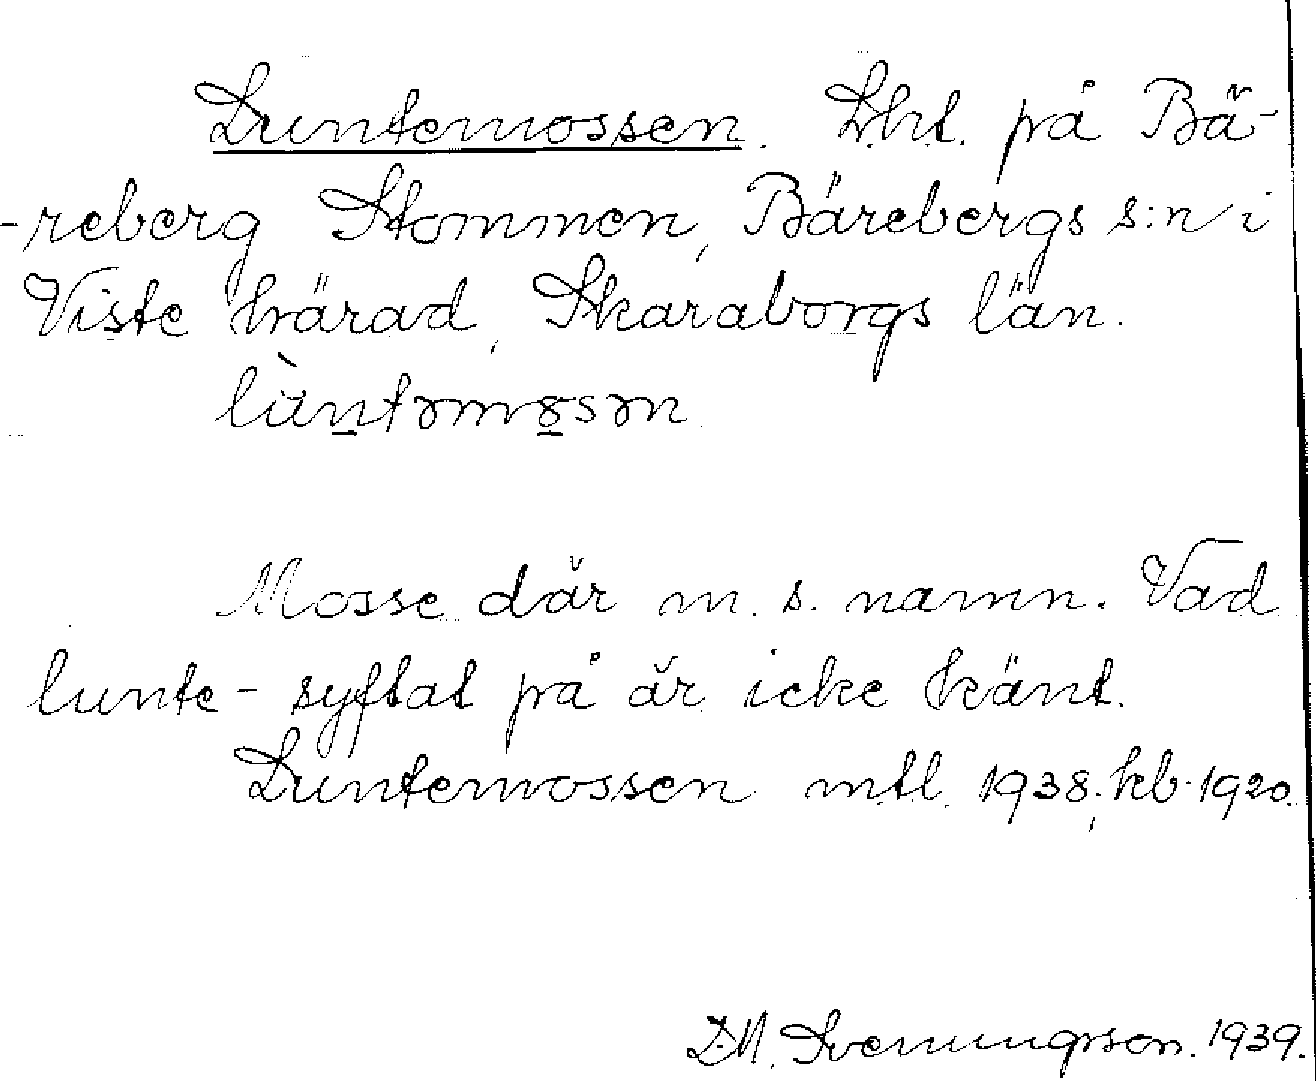 Luntemossen. Lht. på Bä-
-reberg Stommen, Bärebergs s:n i
Viste härad, Skaraborgs län.
lùntəmɤsən
Mosse där m. s. namn. Vad
lunte- syftat på är icke känt.
Luntemossen mtl. 1938; kb. 1920.
Svenungsson. 1939.